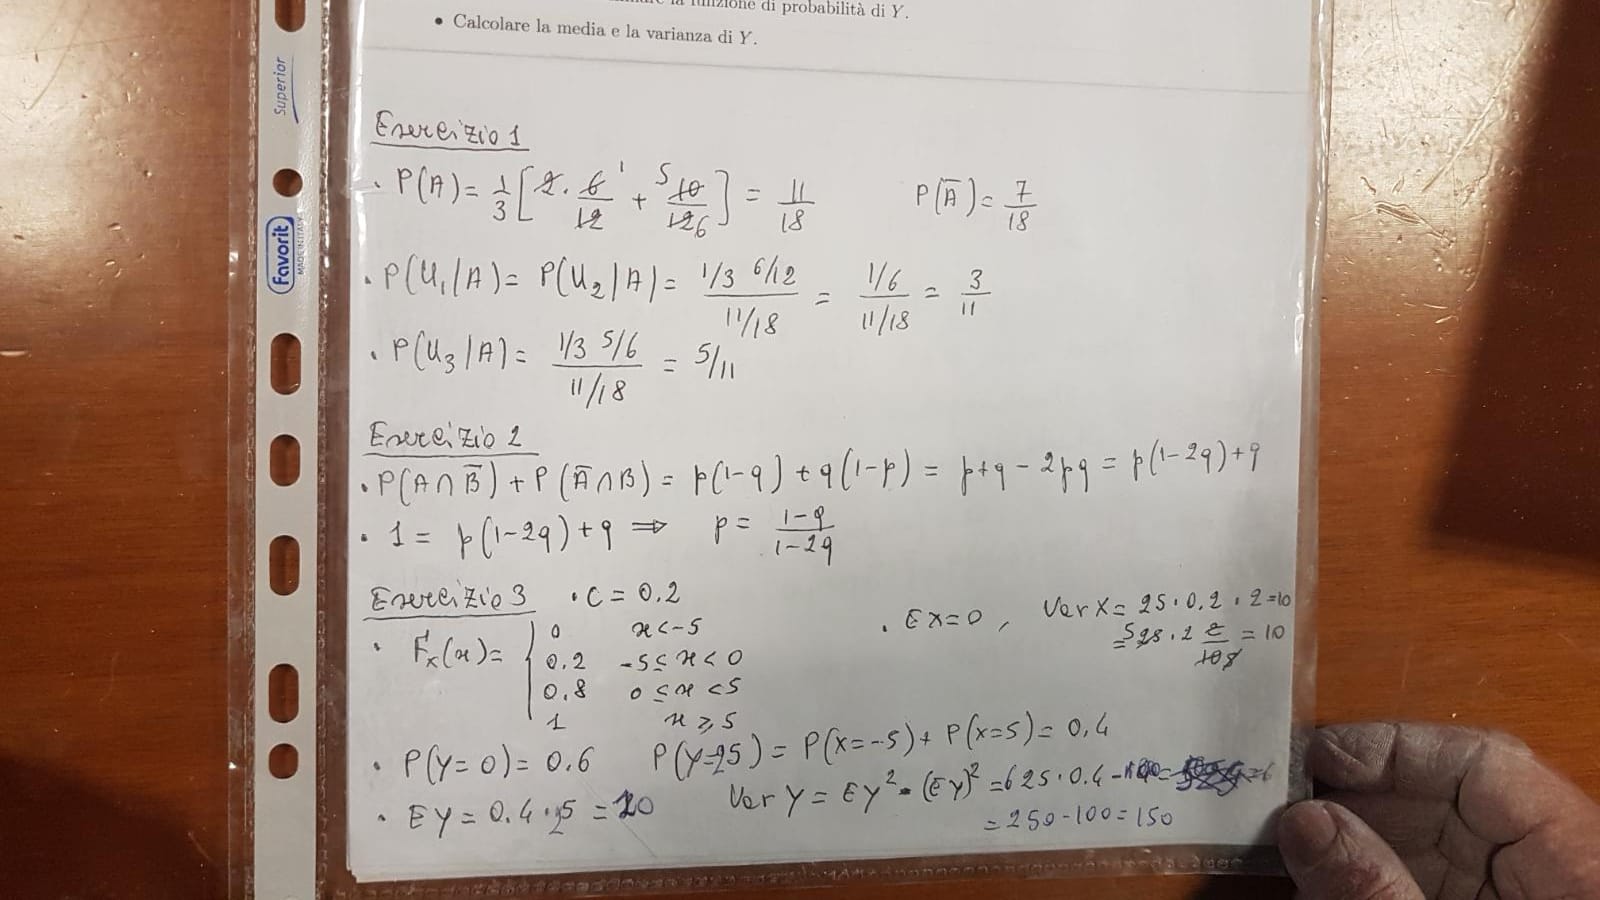 la funzione di probabilità di Y.
• Calcolare la media e la varianza di Y.
Superior
Favorit
MADE IN ITALY
Esercizio 1
• P(A) = 1/3 [2 · 6/12 + 10/12] = 11/18 P(Ā) = 7/18
• P(U₁/A) = P(U₂/A) = (1/3 6/12)/(11/18) = (1/6)/(11/18) = 3/11
• P(U₃/A) = (1/3 5/6)/(11/18) = 5/11
Esercizio 2
• P(A∩B̄) + P(Ā∩B) = p(1-q) + q(1-p) = p+q - 2pq = p(1-2q)+q
• 1 = p(1-2q)+q ⇒ p = (1-q)/(1-2q)
Esercizio 3 • C = 0.2
• Fₓ(x) = { 0 x<-5
0.2 -5≤x<0
0.8 0≤x<5
1 x≥5
• EX=0, Var X = 25·0.2·2=10
= 10
• P(Y=0) = 0.6 P(Y=25) = P(X=-5) + P(X=5) = 0.4
• EY = 0.4·25 = 10 Var Y = EY² - (EY)² = 625·0.4 - 100 =
= 250-100 = 150